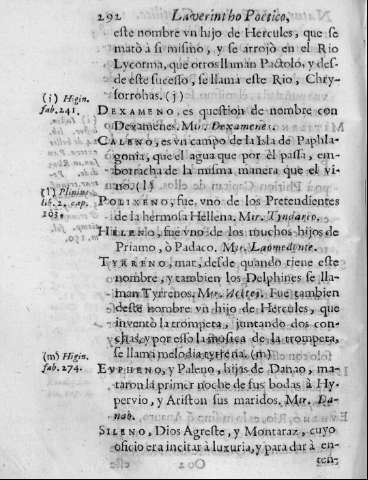 292 Laverintho Poetico,
este nombre vn hijo de Hercules, que se
matò a si mismo, y se arrojò en el Rio
Lycorma, que otros llaman Pactolo, y des-
de este sucesso, se llama este Rio, Chry-
sorrohas. (j)
(i) Higin.
fab. 241.
DEXAMENO, es question de nombre con
Dexamenes. Mir. Dexamenes.
CALENO, es vn campo de la Isla de Paphla-
gonia, que el agua que por èl passa, em-
borracha de la misma manera que el vi-
no. (l)
(l) Plinius
lib. 2. cap.
103.
POLIXENO, fue vno de los Pretendientes
de la hermosa Hellena. Mir. Tyndario.
HELENO, fue vno de los muchos hijos de
Priamo, ò Padaco. Mir. Laomedonte.
TYRRENO, mar, desde quando tiene este
nombre, y tambien los Delphines se lla-
man Tyrrenos. Mir. Acetes. Fue tambien
deste nombre vn hijo de Hercules, que
inventò la trompeta, juntando dos con-
chas, y por esso la musica de la trompeta,
se llama melodia tyrrena. (m)
(m) Higin.
fab. 274.
EVPHENO, y Paleno, hijas de Danao, ma-
taron la primer noche de sus bodas à Hy-
pervio, y Ariston sus maridos. Mir. Da-
nab.
SILENO, Dios Agreste, y Montaraz, cuyo
oficio era incitar à luxuria, y para dar à en-
ten-